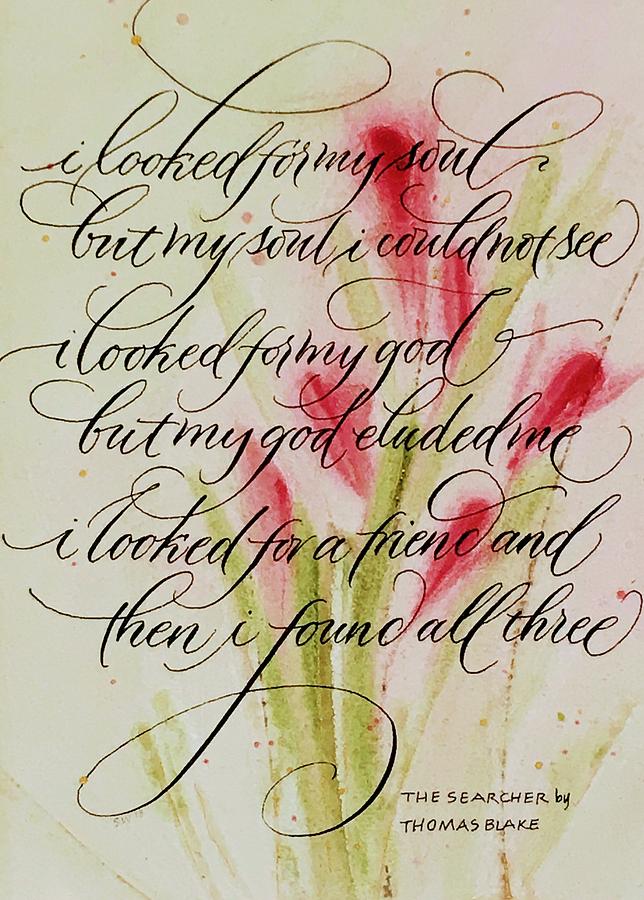 i looked for my soul
but my soul i could not see
i looked for my god
but my god eluded me
i looked for a friend and
then i found all three
THE SEARCHER by
THOMAS BLAKE